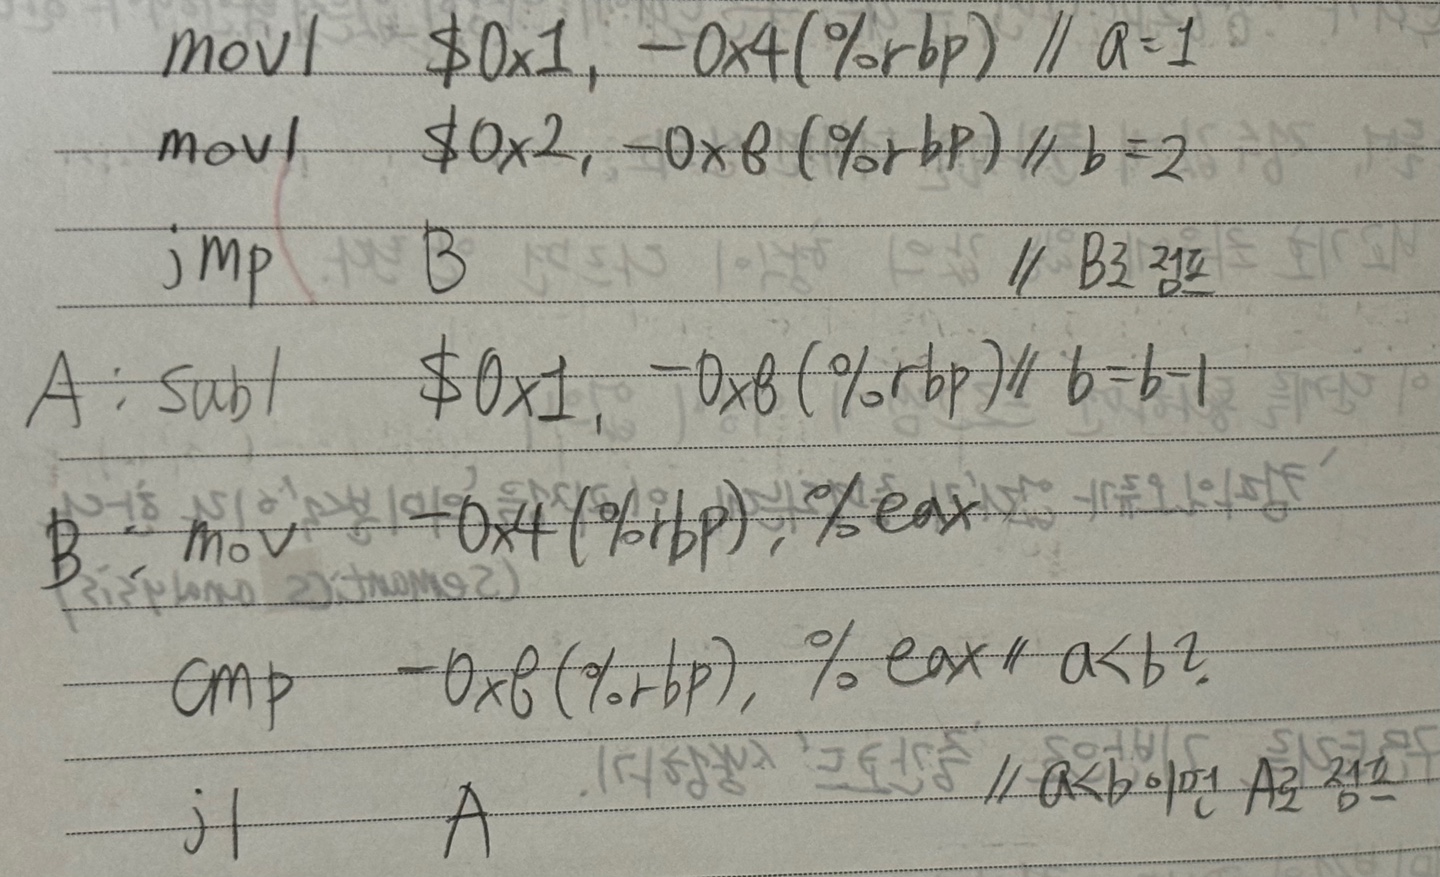 movl $0x1, -0x4(%rbp) // a=1
movl $0x2, -0x8(%rbp) // b=2
jmp B // B로 점프
A: subl $0x1, -0x8(%rbp) // b=b-1
B: mov -0x4(%rbp), %eax
cmp -0x8(%rbp), %eax // a<b?
jl A // a<b이면 A로 점프